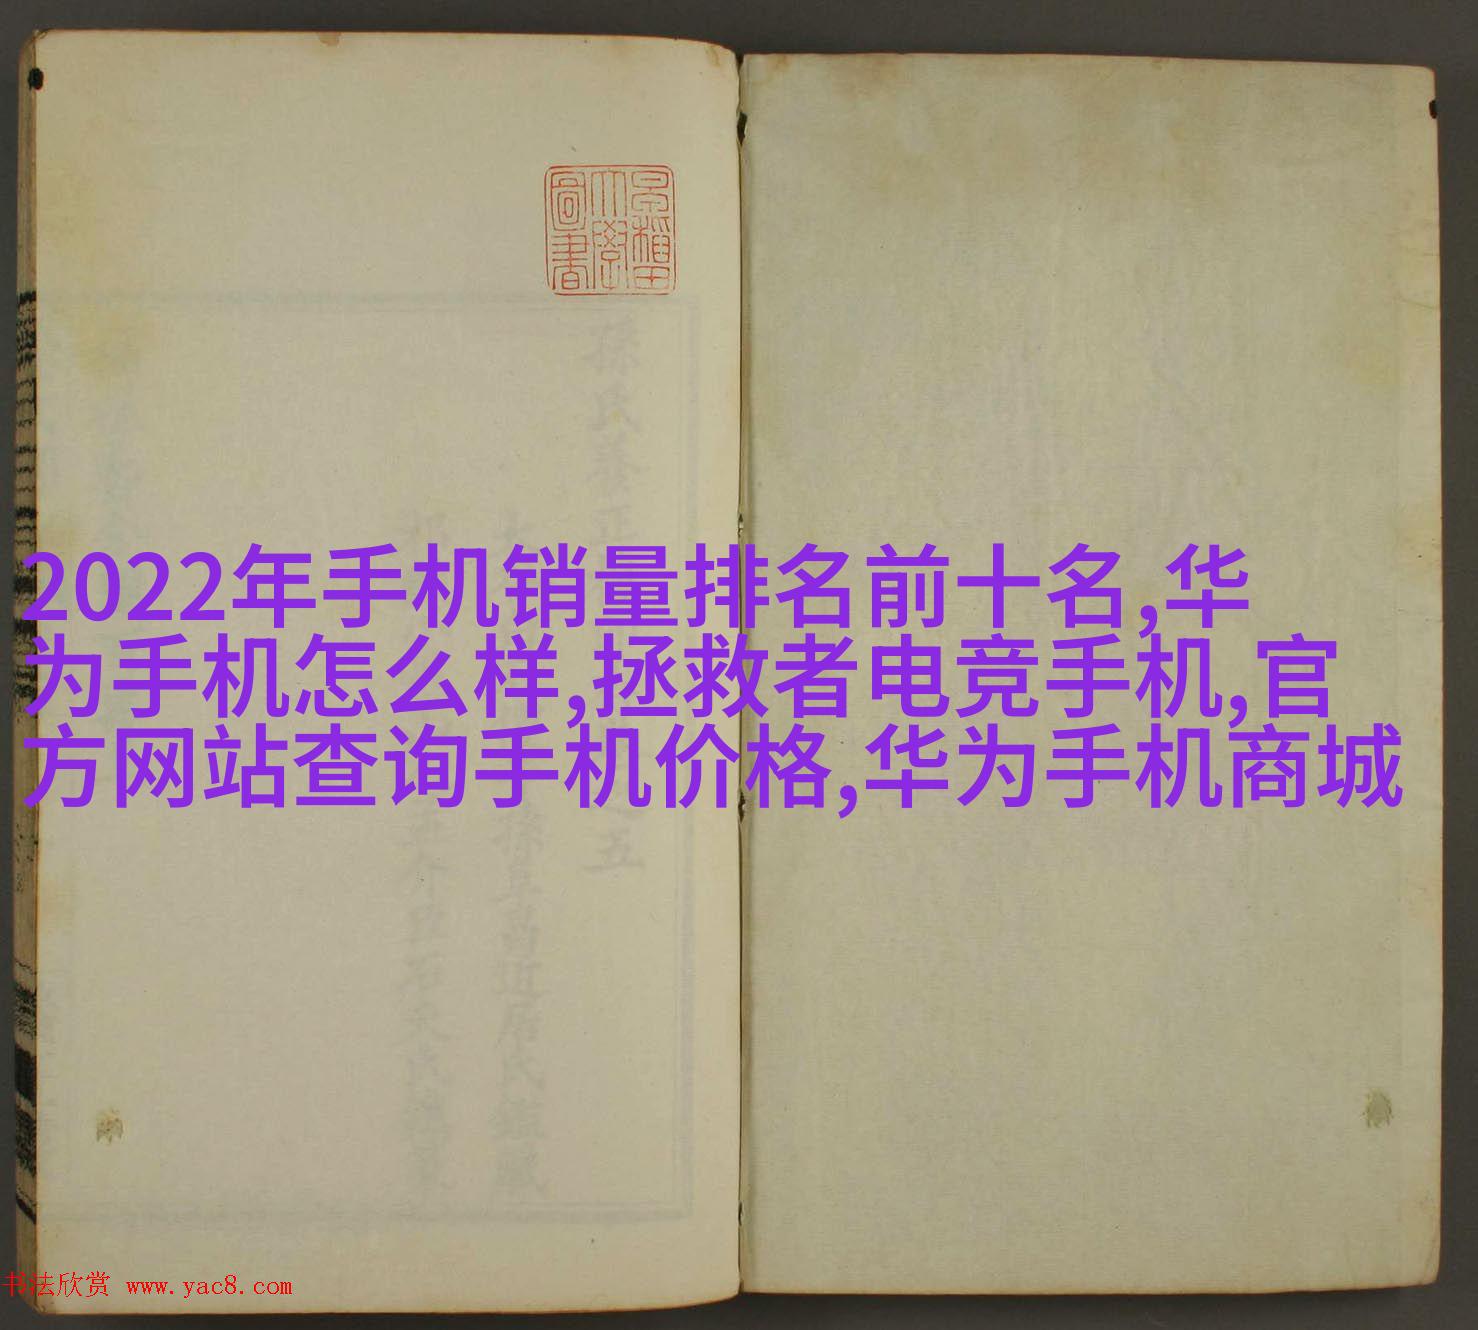 早稲田
大學
圖書
2022年手机销量排名前十名,华
为手机怎么样,拯救者电竞手机,官
方网站查询手机价格,华为手机商城
书法欣赏 www.yac8.com